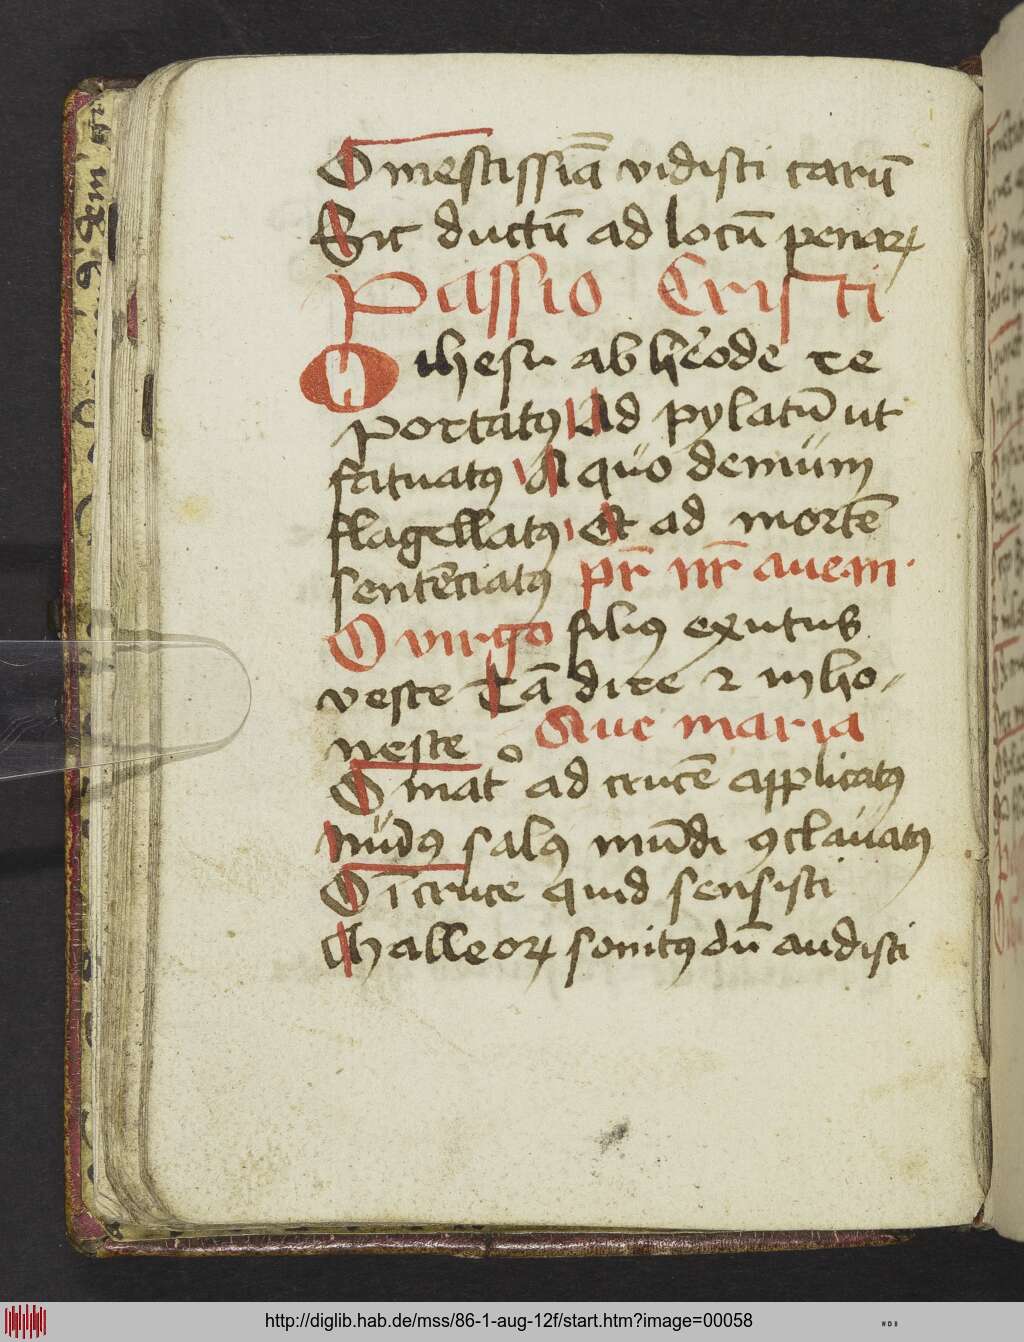 O mestissiā vidisti carū
Sic ductū ad locū penarꝝ
Passio Cristi
O ihesu ab h̄ode re
portatꝰ Ad pylatū ut
fatuatꝰ A quo demum
flagellatꝰ Et ad mortē
sentēciatꝰ pr̄ nr̄ aue m
O virgo filiꝰ exutus
veste Tā dire ⁊ inho-
neste Aue maria
O mat͛ ad crucē applicatꝰ
Nudꝰ salꝰ mūdi ꝯclauatꝰ
O ī cruce quid sensisti
Malleorꝝ sonitꝰ dū audisti
http://diglib.hab.de/mss/86-1-aug-12f/start.htm?image=00058